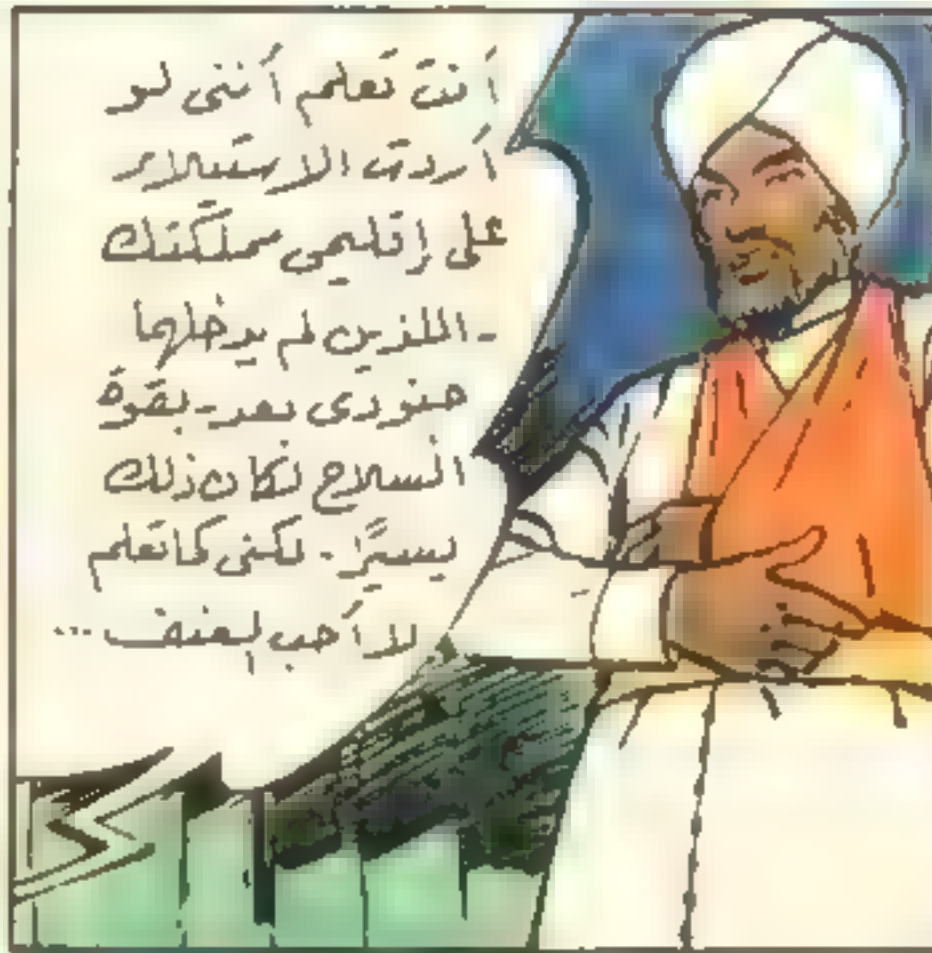 أنت تعلم أننى لو
أردت الاستيلاء
على إقليمى مملكتك
- اللذين لم يدخلهما
جنودى بعد - بقوة
السلاح لكان ذلك
يسيرًا - لكنى كما تعلم
لا أحب العنف ...